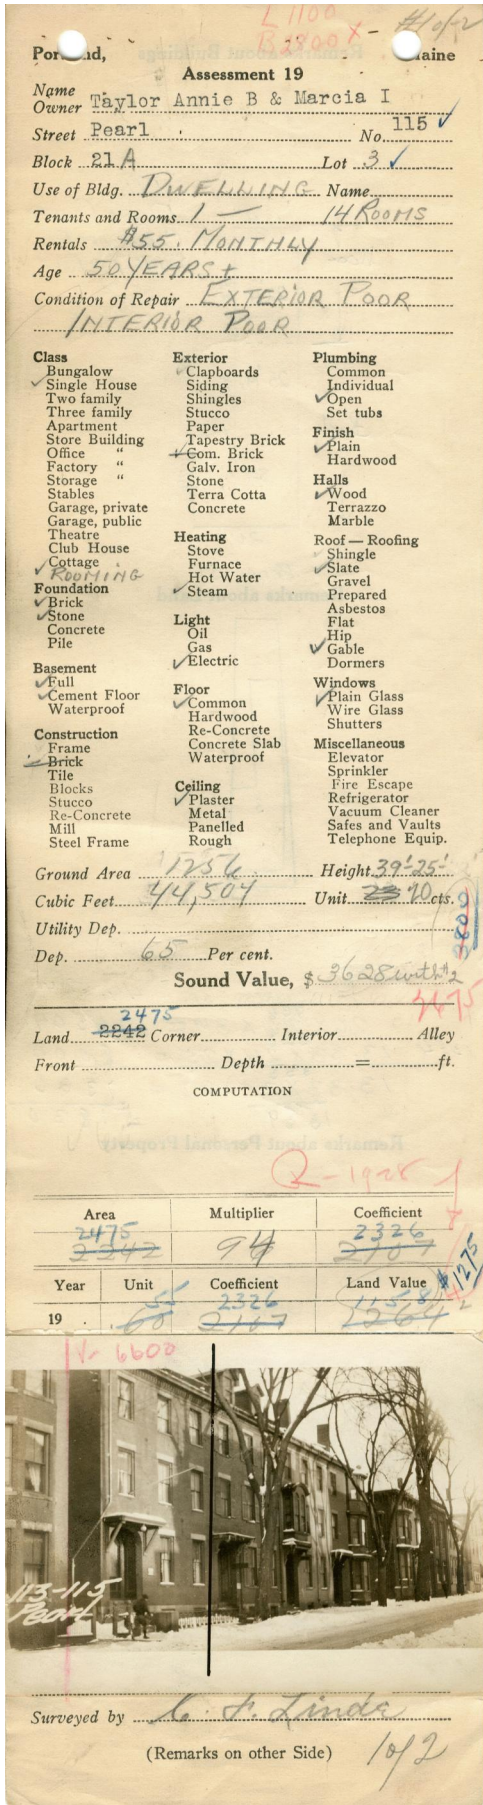 L 1100
B 2800 X
#1 of 2
Portland, Maine
Assessment 19
Name
Owner Taylor Annie B & Marcia I
Street Pearl No 115 ✓
Block 21 A Lot 3 ✓
Use of Bldg. DWELLING Name
Tenants and Rooms 1 — 14 ROOMS
Rentals $55. MONTHLY
Age 50 YEARS +
Condition of Repair EXTERIOR POOR
INTERIOR POOR
Class
Bungalow
✓ Single House
Two family
Three family
Apartment
Store Building
Office "
Factory "
Storage "
Stables
Garage, private
Garage, public
Theatre
Club House
✓ Cottage
ROOMING
Foundation
✓ Brick
✓ Stone
Concrete
Pile
Basement
✓ Full
✓ Cement Floor
Waterproof
Construction
Frame
✓ Brick
Tile
Blocks
Stucco
Re-Concrete
Mill
Steel Frame
Exterior
✓ Clapboards
Siding
Shingles
Stucco
Paper
Tapestry Brick
✓ Com. Brick
Galv. Iron
Stone
Terra Cotta
Concrete
Heating
Stove
Furnace
Hot Water
✓ Steam
Light
Oil
Gas
✓ Electric
Floor
✓ Common
Hardwood
Re-Concrete
Concrete Slab
Waterproof
Ceiling
✓ Plaster
Metal
Panelled
Rough
Plumbing
Common
Individual
✓ Open
Set tubs
Finish
✓ Plain
Hardwood
Halls
✓ Wood
Terrazzo
Marble
Roof — Roofing
✓ Shingle
✓ Slate
Gravel
Prepared
Asbestos
Flat
Hip
✓ Gable
Dormers
Windows
✓ Plain Glass
Wire Glass
Shutters
Miscellaneous
Elevator
Sprinkler
Fire Escape
Refrigerator
Vacuum Cleaner
Safes and Vaults
Telephone Equip.
Ground Area 1256 Height 39'-25'
Cubic Feet 44,504 Unit 23 20 cts.
2800
Utility Dep.
Dep. 65 Per cent.
Sound Value, $ 3628 with #2
2675
2475
Land 2242 Corner Interior Alley
Front Depth = ft.
COMPUTATION
R-1928
Area Multiplier Coefficient
2475 2326
2242 94 2107
$1275
Year Unit Coefficient Land Value
55 2326
19 . 60 2107 1264
V- 6600
113-115
Pearl
Surveyed by C. F. Linde
(Remarks on other Side) 1 of 2